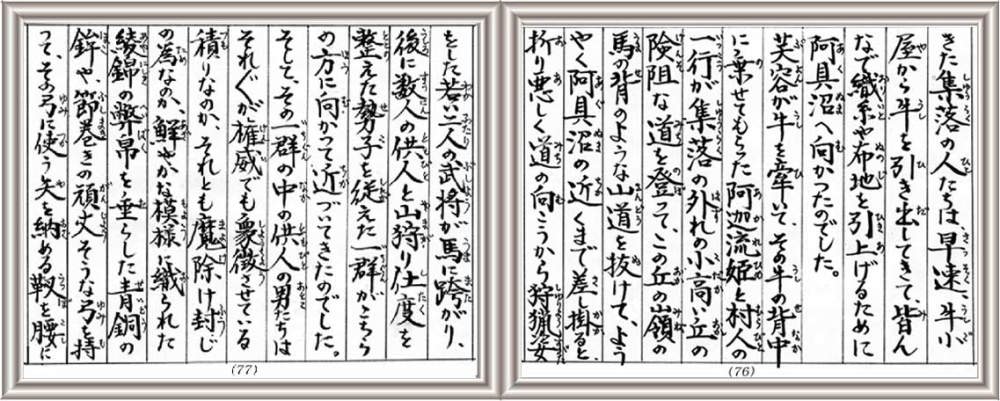 きた集落の人たちは、早速、牛小
屋から牛を引き出してきて、皆ん
なで織糸や布地を引上げるために
阿具沼へ向かつたのでした。
芙容が牛を牽いて、その牛の背中
に乗せてもらつた阿迦流姫と村人の
一行が集落の外れの小高い丘の
険阻な道を登って、この丘の嶺の
馬の背のような山道を抜けて、よう
やく阿具沼の近くまで差し掛ると、
折り悪しく道の向こうから狩猟姿
(76)
をした若い二人の武将が馬に跨がり、
後に数人の供人と山狩り仕度を
整えた勢子を従えた一群がこちら
の方に向かって近づいてきたのでした。
そして、その一群の中の供人の男たちは
それぐが権威でも象徴させている
積りなのか、それとも魔除け封じ
の為なのか、鮮やかな模様に織られた
綾錦の幣帛を垂らした青銅の
鉾や、節巻きの頑丈そうな弓を持
って、その弓に使う矢を納める靫を腰に
(77)